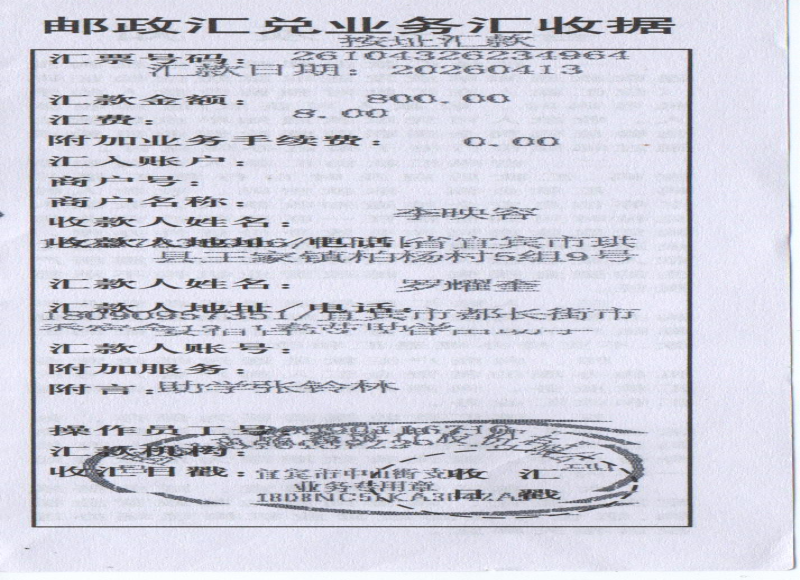 邮政汇兑业务汇收据
按址汇款
汇票号码: 26104326234964
汇款日期: 20260413
汇款金额: 800.00
汇费: 8.00
附加业务手续费: 0.00
汇入账户:
商户号:
商户名称:
收款人姓名: 李映容
收款人地址/电话 省宜宾市珙
县王家镇柏杨村5组9号
汇款人姓名: 罗耀奎
汇款人地址/电话
宜宾市都长街市
汇款人账号:
附加服务:
附言:助学张铃林
操作员工号
汇款机构:
收汇日戳: 宜宾市中山街支 收汇
业务专用章 日戳